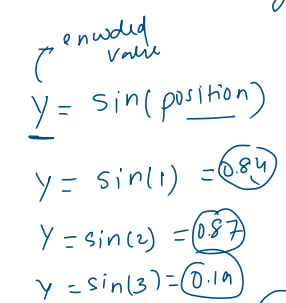 encoded
value
y = sin(position)
y = sin(1) = 0.84
y = sin(2) = 0.87
y = sin(3) = 0.19